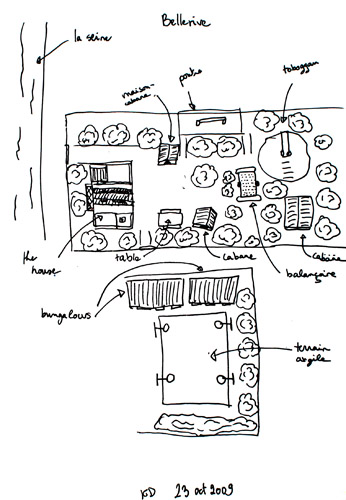 Bellerive
la seine
maison-
cabane
poutre
toboggan
the
house
table
cabane
balançoire
cabine
bungalows
terrain
argile
KD 23 oct 2009